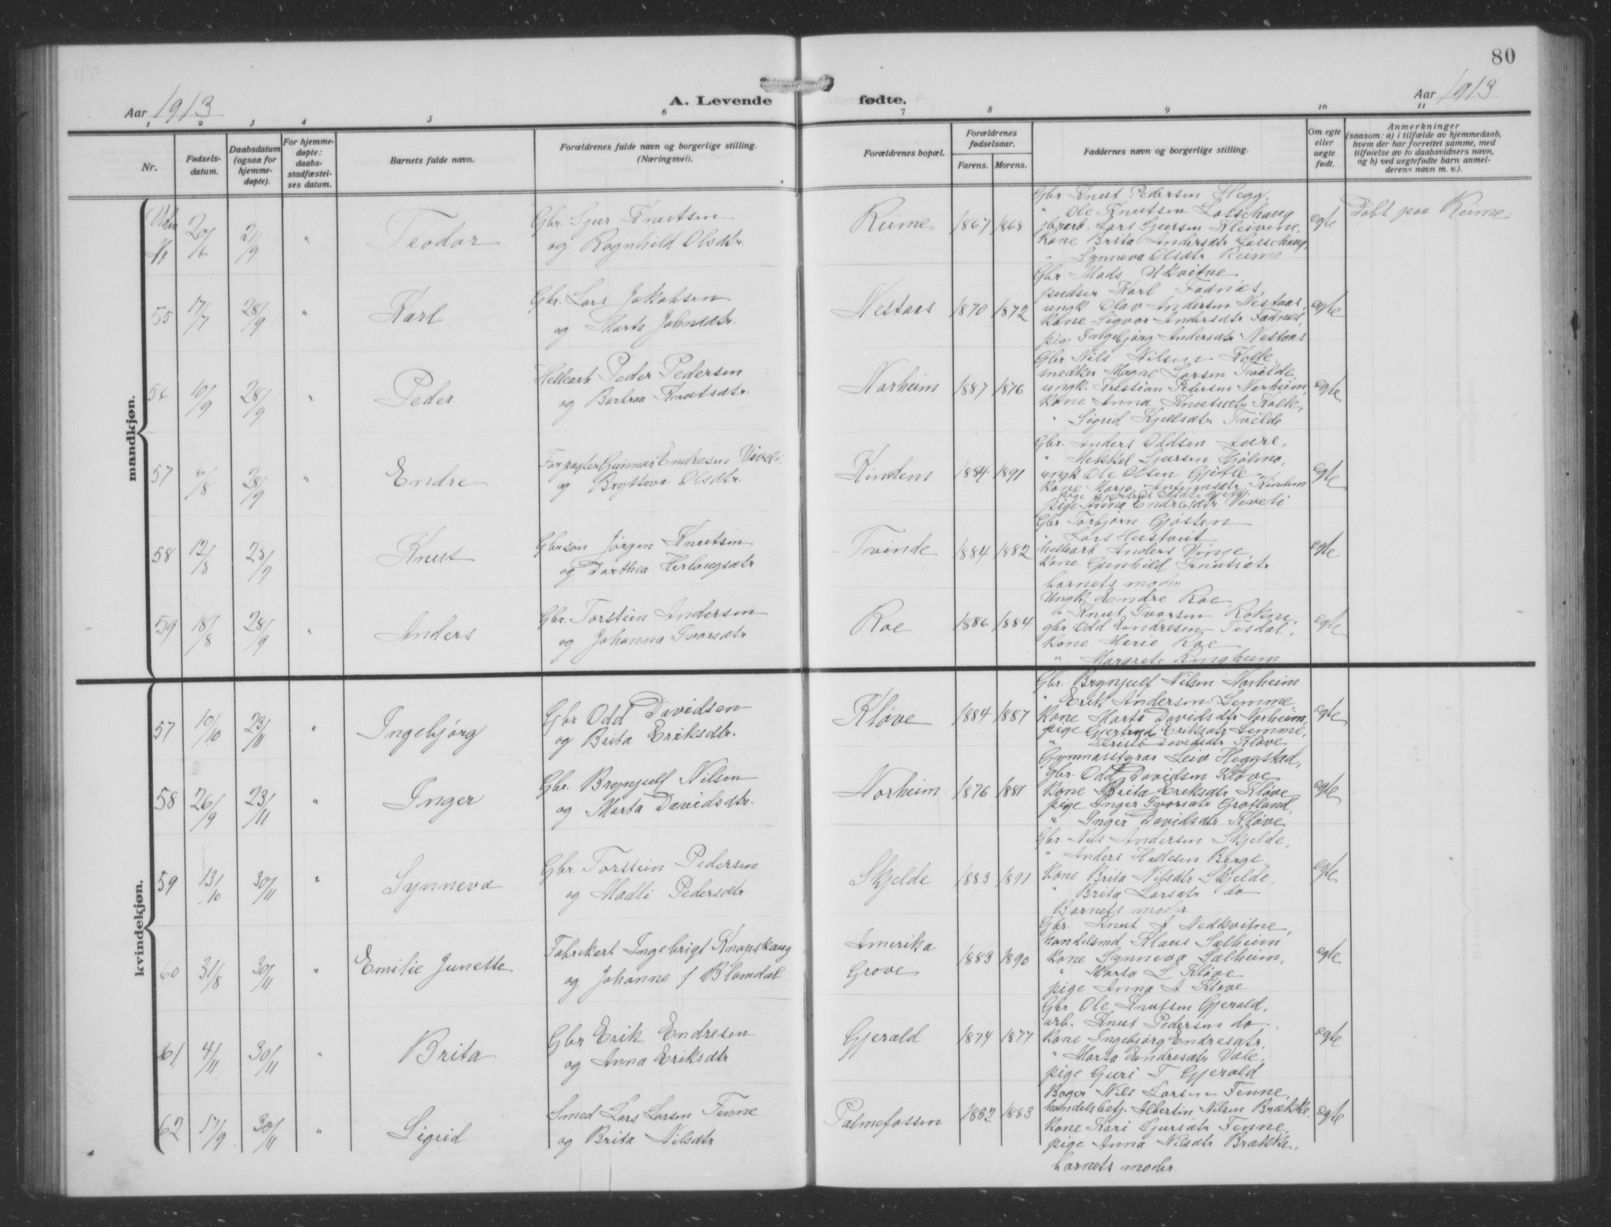 80
Aar 1913
A. Levende fødte.
Aar 1913
1 2 3 4 5 6 7 8 9 10 11
Nr.
Fødsels-
datum.
Daabsdatum
(ogsaa for
hjemme-
døpte).
For hjemme-
døpte:
daabs-
stadfæstel-
ses datum.
Barnets fulde navn.
Forældrenes fulde navn og borgerlige stilling.
(Næringsvei).
Forældrenes bopæl.
Forældrenes
fødselsaar.
Farens. Morens.
Faddernes navn og borgerlige stilling.
Om egte
eller
uegte
født.
Anmerkninger
(saasom: a) i tilfælde av hjemmedaab,
hvem der har forrettet samme, med
tilføielse av to daabsvidners navn,
og b) ved uegtefødte barn anmel-
derens navn m. v.).
mandkjøn.
20/6 21/9 " Teodor
Gbr. Sjur Knutsen
og Ragnhild Olsdtr.
Rime 1867 1868
Gbr Knut Pedersen Hegg,
" Ole Knutsen
Lars Sjursen
Kone Brita Andersdtr
" Synneva Olsdtr Rime
egte
Døbt paa Rime.
55 17/7 28/9 " Karl
Gbr. Lars Jakobsen
og Marta Johnsdtr.
Nestaas 1870 1872
Gbr Mads Ukvitne
Karl Fadnes,
ungk Olav Andersen Nestaas,
Kone Sigvor Andersdtr Fadnes,
pige Ingebjørg Andersdtr Nestaas
egte
56 10/9 28/9 " Peder
Peder Pedersen
og Barbraa Knutsdtr.
Norheim 1887 1876
Gbr Nils Nilsen Kolle
snedker Magne Larsen Tvilde,
ungk. Kristian Pedersen Norheim,
Kone Anna Knutsdtr Kolle,
" Sigrid Kjelsdtr Tvilde
egte
57 6/8 28/9 " Endre
Forpagter Gunnar Endresen Viveli
og Brytteva Olsdtr.
Kinden 1884 1891
Gbr. Anders Oddsen
" Mikkel Sjursen Hjølmo,
ungk Ole Olsen Gjelle
Kone Kinden
pige Anna Endresdtr Viveli
egte
58 12/8 23/9 Knut
Gbrsøn Jørgen Knutsen
og Dorthea Herlaugsdtr
Tvinde 1884 1882
Gbr Torbjørn Gjøsten
" Lars Hustveit
Anders Vinje,
Kone Gunhild Knutsdtr
barnets moder
egte
59 18/8 28/9 " Anders
Gbr. Torstein Andersen
og Johanna Ivarsdtr
Roe 1886 1884
Ungk Endre Roe
" Knut Ivarsen Rokne,
gbr Odd Endresen
Kone Marie Roe
" Margrete Ringheim
egte
kvindekjøn.
57 10/10 23/11 " Ingebjørg
Gbr Odd Davidsen
og Brita Eriksdtr.
Kløve 1884 1887
Gbr. Brynjulf Nilsen Norheim
" Erik Andersen Lemme
Kone Marta Davidsdtr Norheim,
pige Gjertrud Eriksdtr Lemme,
" Davidsdtr Kløve
egte
58 26/9 23/11 " Inger
Gbr. Brynjulf Nilsen
og Marta Davidsdtr.
Norheim 1876 1881
Leiv Heggstad,
Gbr. Odd Davidsen Kløve
Kone Brita Eriksdtr Kløve
pige Inger Ivarsdtr
" Inger Davidsdtr Kløve
egte
59 13/10 30/11 " Synneva
Gbr. Torstein Pedersen
og Madli Pedersdtr
Skjelde 1883 1891
Gbr Nils Andersen Skjelde,
" Anders Hallesen Børge
Kone Brita Nilsdtr Skjelde,
" Brita Larsdtr do
Barnets moder
egte
60 31/8 30/11 " Emilie Junette
Fabrikert Ingebrigt Knapskaug
og Johanne J Blomdal
Amerika
Grove
1883 1890
Gbr. Knut J Nedkvitne,
handelsmd Klaus Sælheim
Kone Synneva Sælheim,
" Marta L Kløve
pige Anna J Kløve
egte
61 4/11 30/11 " Brita
Gbr Erik Endresen
og Anna Eriksdtr
Gjerald 1874 1877
Gbr Ole Knutsen Gjerald,
arb. Knut Pedersen do.
Kone Ingebjørg Endresdtr,
" Marta Endresdtr
pige Guri T Gjerald
egte
62 17/9 30/11 " Sigrid
Smed Lars Larsen Finne
og Brita Nilsdtr
Palmefossen 1882 1883
Bager Nils Larsen Finne,
handelsbetj. Albertin Nilsen Brække
Kone Kari Sjursdtr Finne,
pige Anna Nilsdtr Brække,
barnets moder
egte